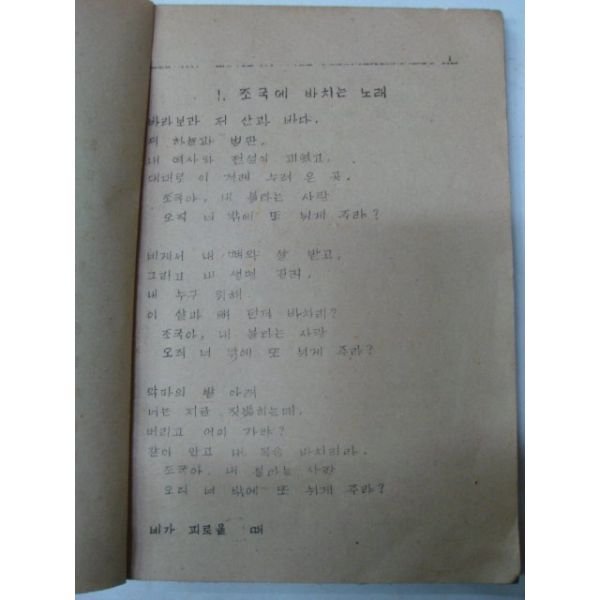 1
1. 조국에 바치는 노래
바라보라 저 산과 바다.
저 하늘과 벌판.
내 역사와 전설이 괴였고,
대대로 이 겨레 누려 온 곳.
조국아, 내 불타는 사랑
오직 너 밖에 또 뉘게 주랴?
네게서 내 뼈와 살 받고,
그리고 내 생명 길러,
내 누구 위해
이 살과 뼈 던져 바치리?
조국아, 내 불타는 사랑
오직 너 밖에 또 뉘게 주랴?
악마의 발 아래
너는 지금 짓밟히는데,
버리고 어이 가랴?
같이 안고 내 목숨 바치리라.
조국아, 내 불타는 사랑
오직 너 밖에 또 뉘게 주랴?
네가 괴로울 때